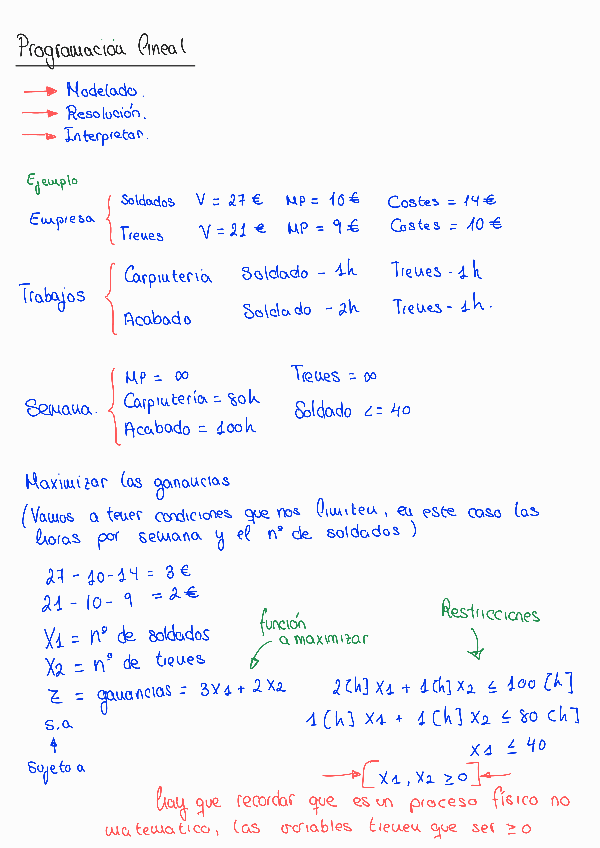 Programación lineal
→ Modelado.
→ Resolución.
→ Interpretar.
Ejemplo
Empresa { Soldados V = 27 € MP = 10 € Costes = 14 €
Trenes V = 21 € MP = 9 € Costes = 10 €
Trabajos { Carpintería Soldado - 1h Trenes - 1h
Acabado Soldado - 2h Trenes - 1h.
Semana. { MP = ∞ Trenes = ∞
Carpintería = 80h Soldado <= 40
Acabado = 100h
Maximizar las ganancias
(Vamos a tener condiciones que nos limiten, en este caso las
horas por semana y el nº de soldados)
27 - 10 - 14 = 3 €
21 - 10 - 9 = 2 €
X1 = nº de soldados
X2 = nº de trenes
función
a maximizar
Z = ganancias = 3X1 + 2X2
s.a
Sujeto a
Restricciones
2[h] X1 + 1[h] X2 ≤ 100 [h]
1[h] X1 + 1[h] X2 ≤ 80 [h]
X1 ≤ 40
→ [X1, X2 ≥ 0] ←
hay que recordar que es un proceso físico no
matematico, las variables tienen que ser ≥ 0